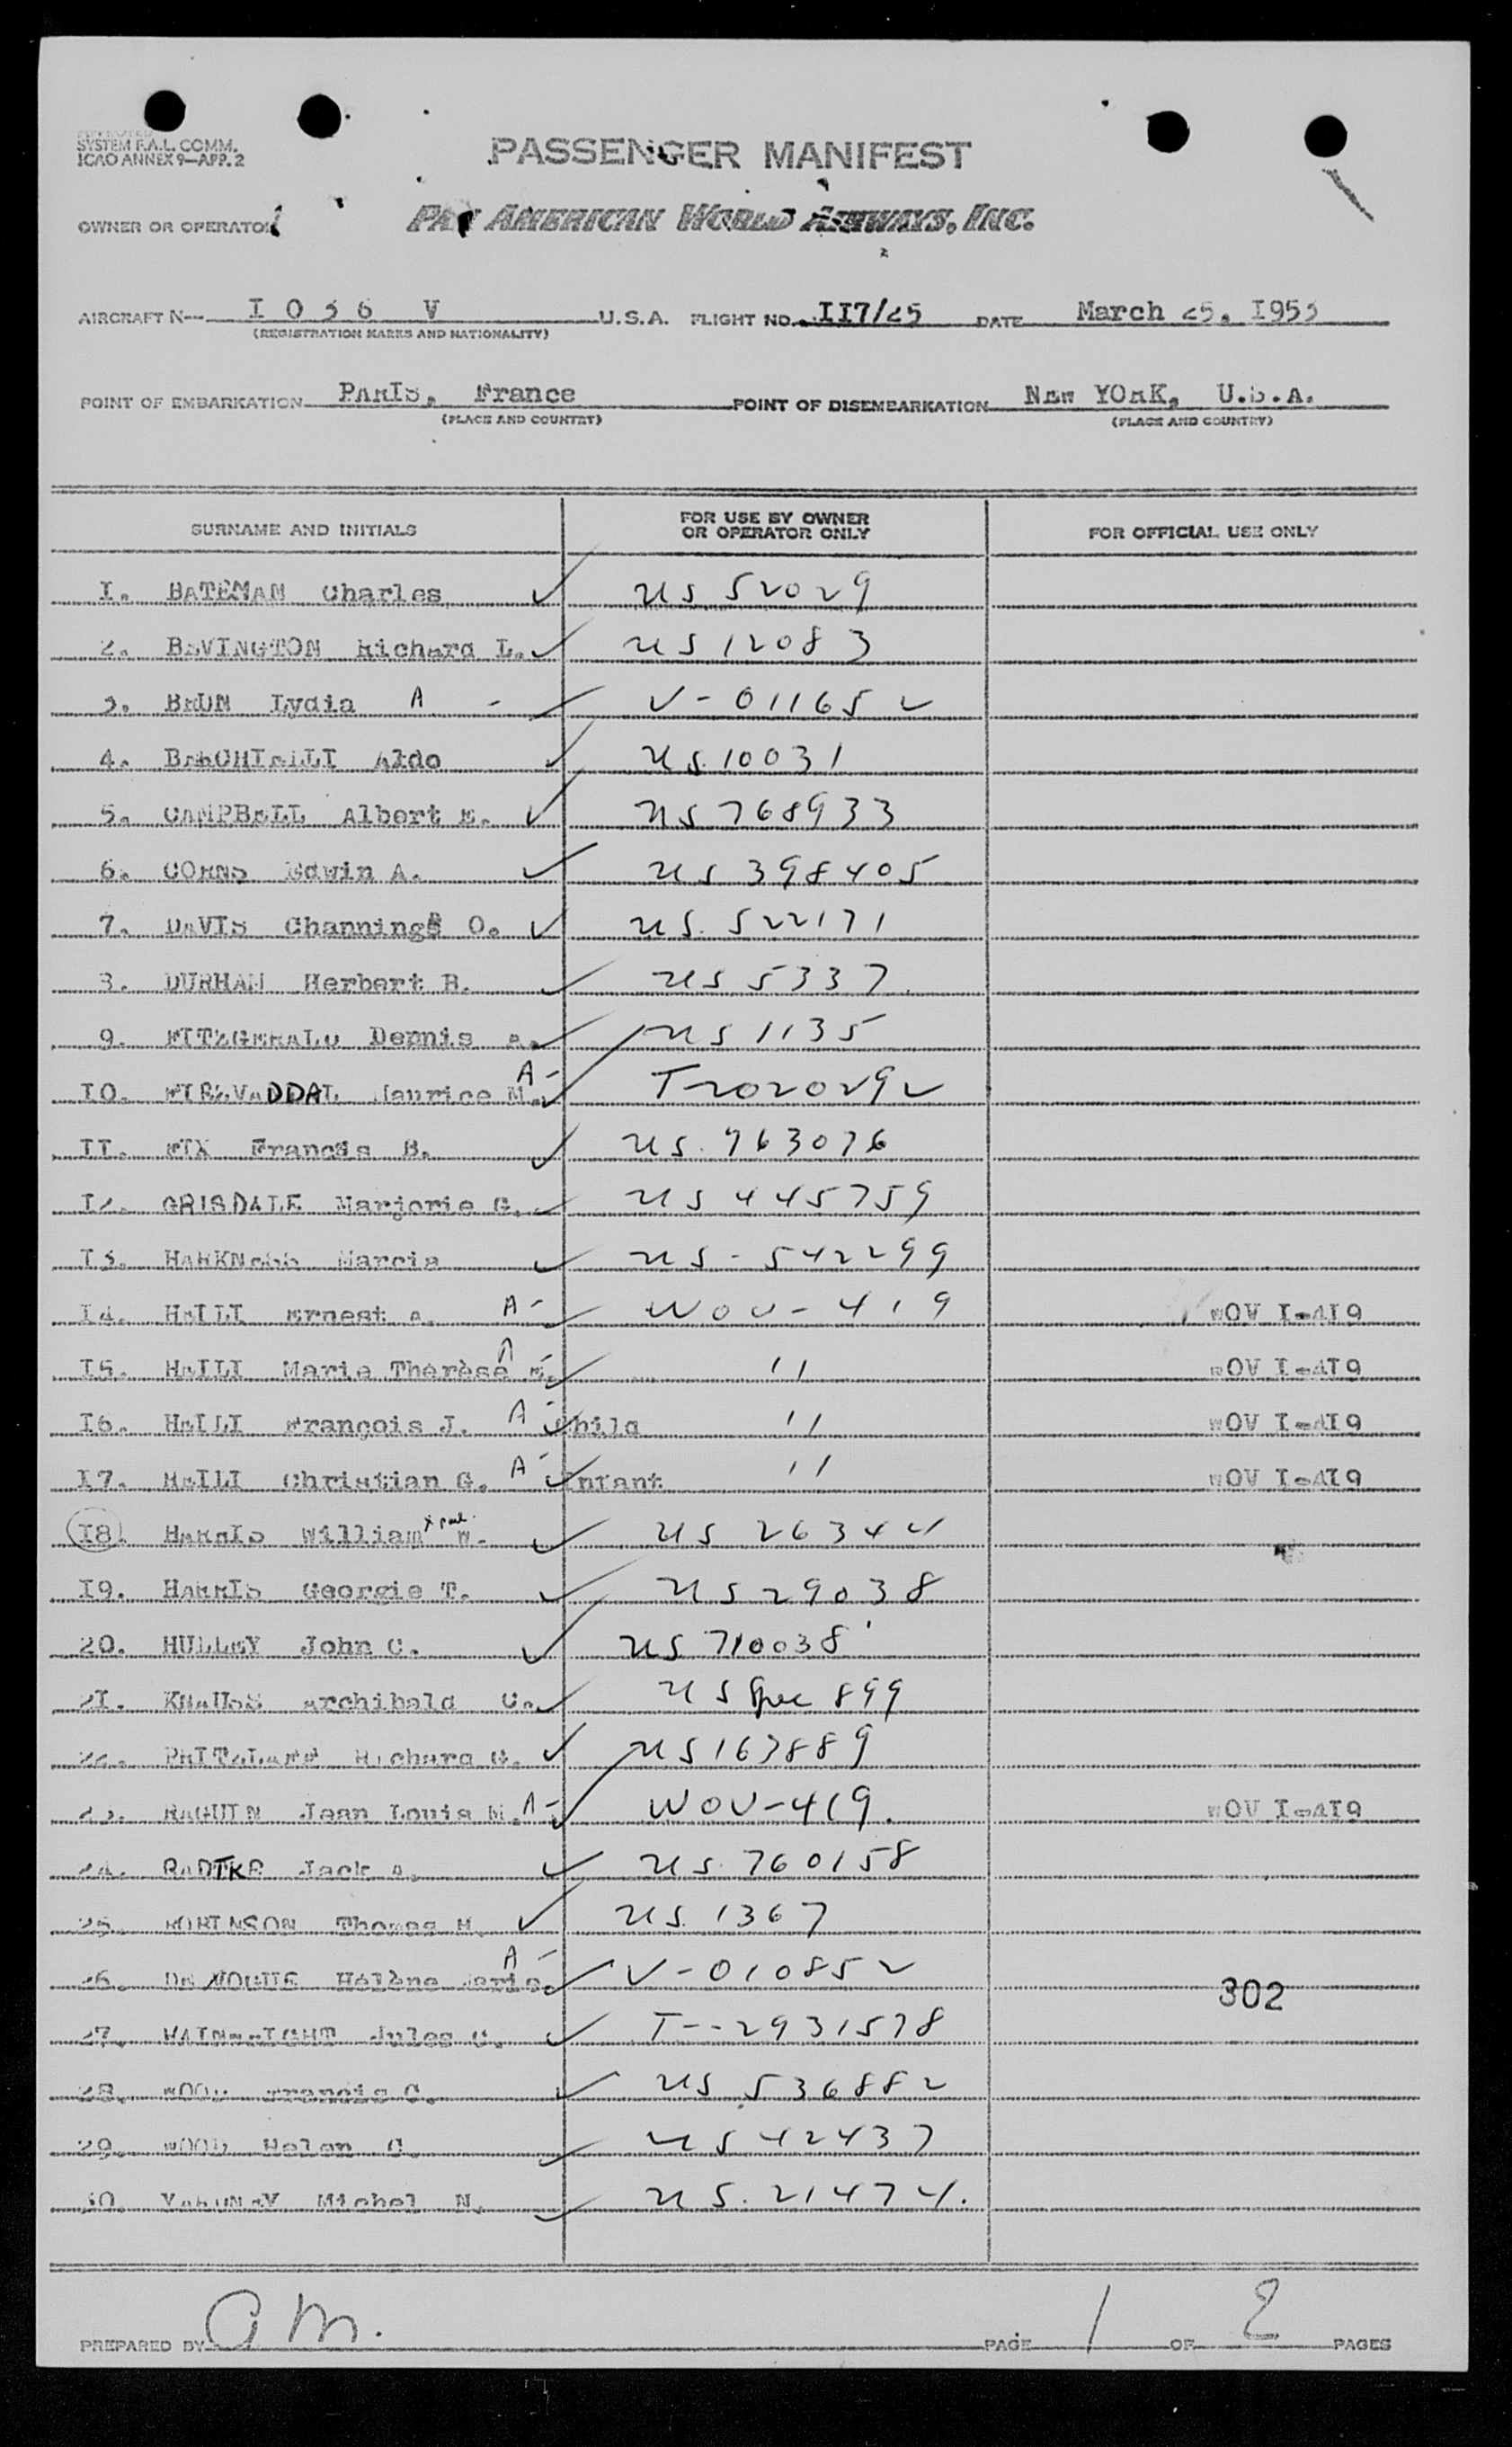 SYSTEM F.A.L. COMM.
ICAO ANNEX 9—APP. 2
PASSENGER MANIFEST
OWNER OR OPERATOR
PAN AMERICAN WORLD AIRWAYS, INC.
AIRCRAFT N— I 0 3 6 V U.S.A. FLIGHT NO. II7/25 DATE March 25, I953
(REGISTRATION MARKS AND NATIONALITY)
POINT OF EMBARKATION PARIS, France POINT OF DISEMBARKATION NEW YORK, U.S.A.
(PLACE AND COUNTRY) (PLACE AND COUNTRY)
SURNAME AND INITIALS FOR USE BY OWNER OR OPERATOR ONLY FOR OFFICIAL USE ONLY
I. BATEMAN Charles US 52029
2. BEVINGTON Richard L. US 12083
3. BRUN Lydia A - V-011652
4. Aldo US 10031
5. CAMPBELL Albert E. US 768933
6. CORNS Edwin A. US 398405
7. DAVIS Channing O. US 522171
8. DURHAM Herbert B. US 5337
9. FITZGERALD Dennis A. US 1135
10. Maurice M. A- T-2020292
II. FIX Francis B. US 963076
I2. GRISDALE Marjorie G. US 445759
I3. HARKNESS Marcia US-542299
I4. HEILI Ernest A. A- WOV-419 WOV I-4I9
I5. HEILI Marie Thérèse E. A- " WOV I-4I9
I6. HEILI François J. A- Child " WOV I-4I9
I7. HEILI Christian G. A- Infant " WOV I-4I9
I8. HARRIS William W. US 26344
I9. HARRIS Georgie T. US 29038
20. HULLEY John C. US 710038
2I. KRAUSS Archibald C. US Spec 899
22. Richard G. US 163889
23. RAGUIN Jean Louis M. A- WOV-419. WOV I-4I9
24. RADTKE Jack A. US 760158
25. ROBINSON Thomas H. US 1367
26. DE VOGUE Hélène Marie. A- V-010852
302
27. WAINWRIGHT Jules C. T--2931578
28. WOOD Francis C. US 536882
29. WOOD Helen C. US 42437
30. Michel N. US. 21474.
PREPARED BY GM. PAGE 1 OF 2 PAGES